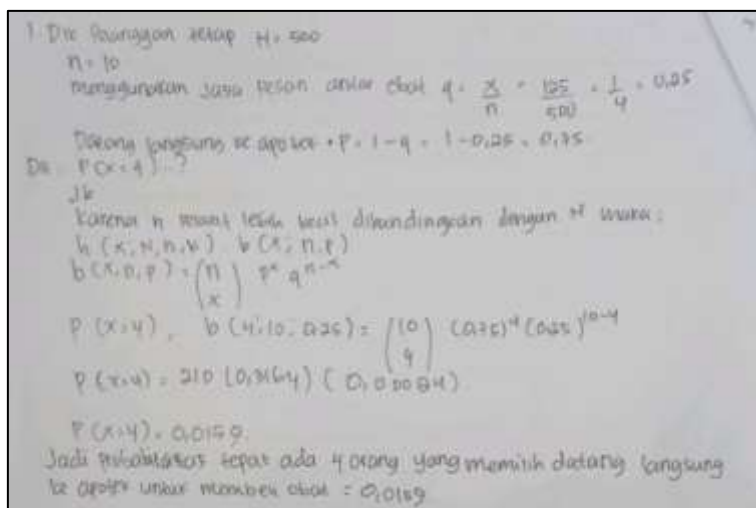 1. Dik Pelanggan tetap N = 500
n = 10
menggunakan jasa pesan antar obat q = x/n = 125/500 = 1/4 = 0,25
Datang langsung ke apotek = P = 1 - q = 1 - 0,25 = 0,75
Dit P(x = 4) ..?
Jb
Karena n sangat lebih kecil dibandingkan dengan N maka:
h (x, N, n, k) b (x; n, p)
b (x, n, p) = (n x) p^x q^n-x
P (x=4), b (4; 10; 0,25) = (10 4) (0,75)^4 (0,25)^10-4
P (x=4) = 210 (0,3164) (0,00024)
P (x=4) = 0,0159
Jadi probabilitas tepat ada 4 orang yang memilih datang langsung
ke apotek untuk membeli obat = 0,0159